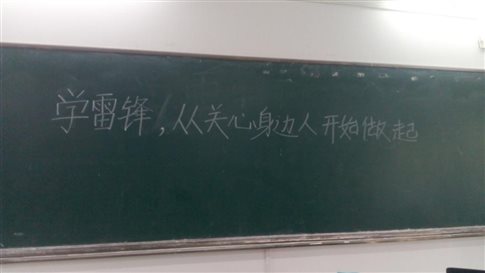 学雷锋，从关心身边人开始做起